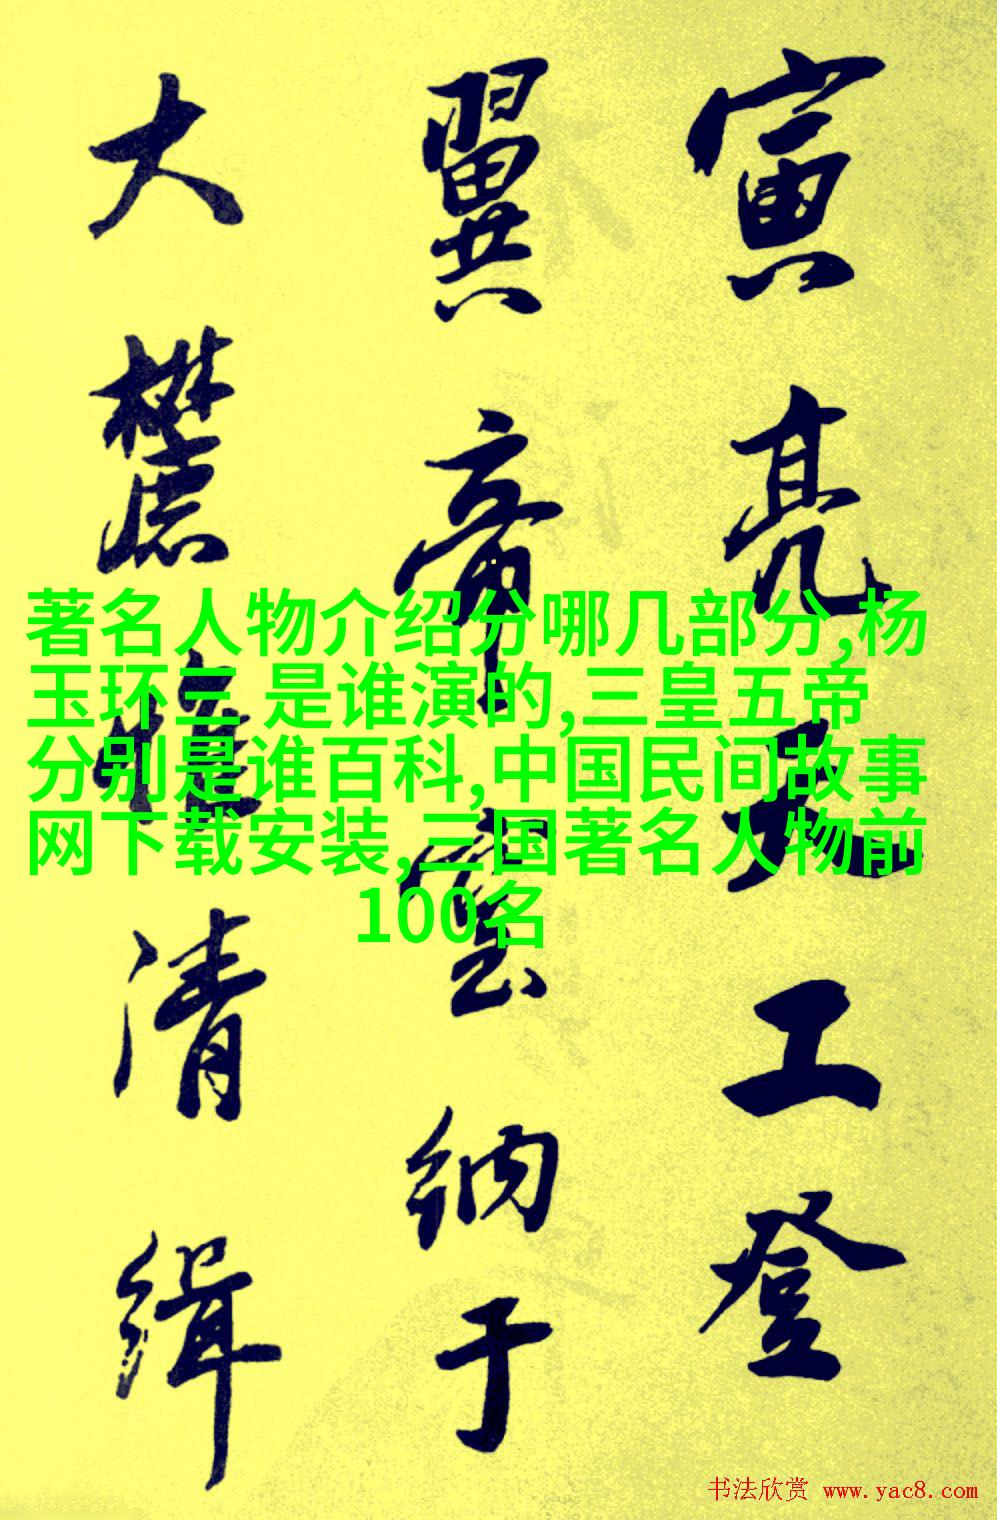 寅亮天工登
翼帝室納于
大麓惟清緝
著名人物介绍分哪几部分,杨
玉环三 是谁演的,三皇五帝
分别是谁百科,中国民间故事
网下载安装,三国著名人物前
100名
书法欣赏 www.yac8.com